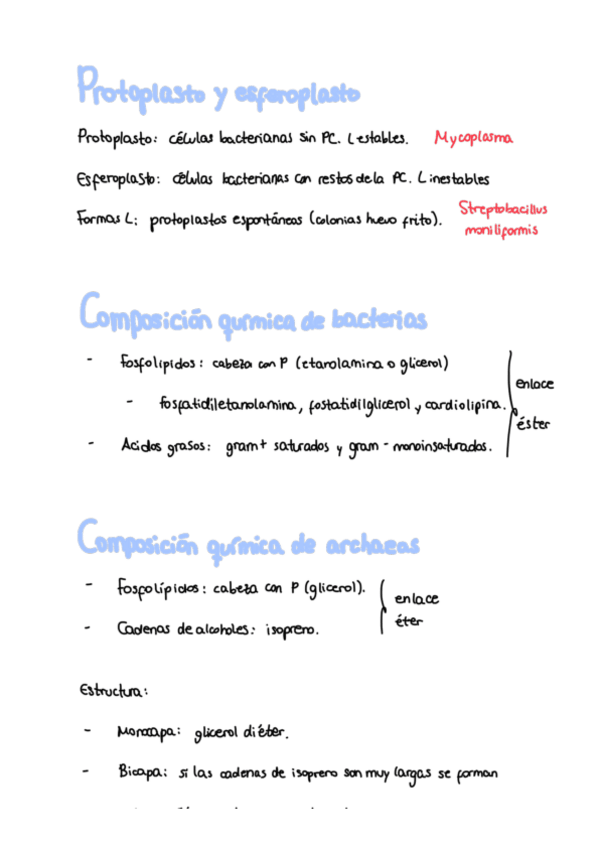 Protoplasto y esferoplasto
Protoplasto: células bacterianas sin PC. L estables. Mycoplasma
Esferoplasto: células bacterianas con restos de la PC. L inestables
Formas L: protoplastos espontáneos (colonias huevo frito). Streptobacillus moniliformis
Composición química de bacterias
- Fosfolípidos: cabeza con P (etanolamina o glicerol)
- fosfatidiletanolamina, fosfatidilglicerol y cardiolipina.
- Acidos grasos: gram+ saturados y gram - monoinsaturados.
enlace
éster
Composición química de archaeas
- Fosfolípidos: cabeza con P (glicerol).
- Cadenas de alcoholes: isopreno.
enlace
éter
Estructura:
- Monocapa: glicerol diéter.
- Bicapa: si las cadenas de isopreno son muy largas se forman